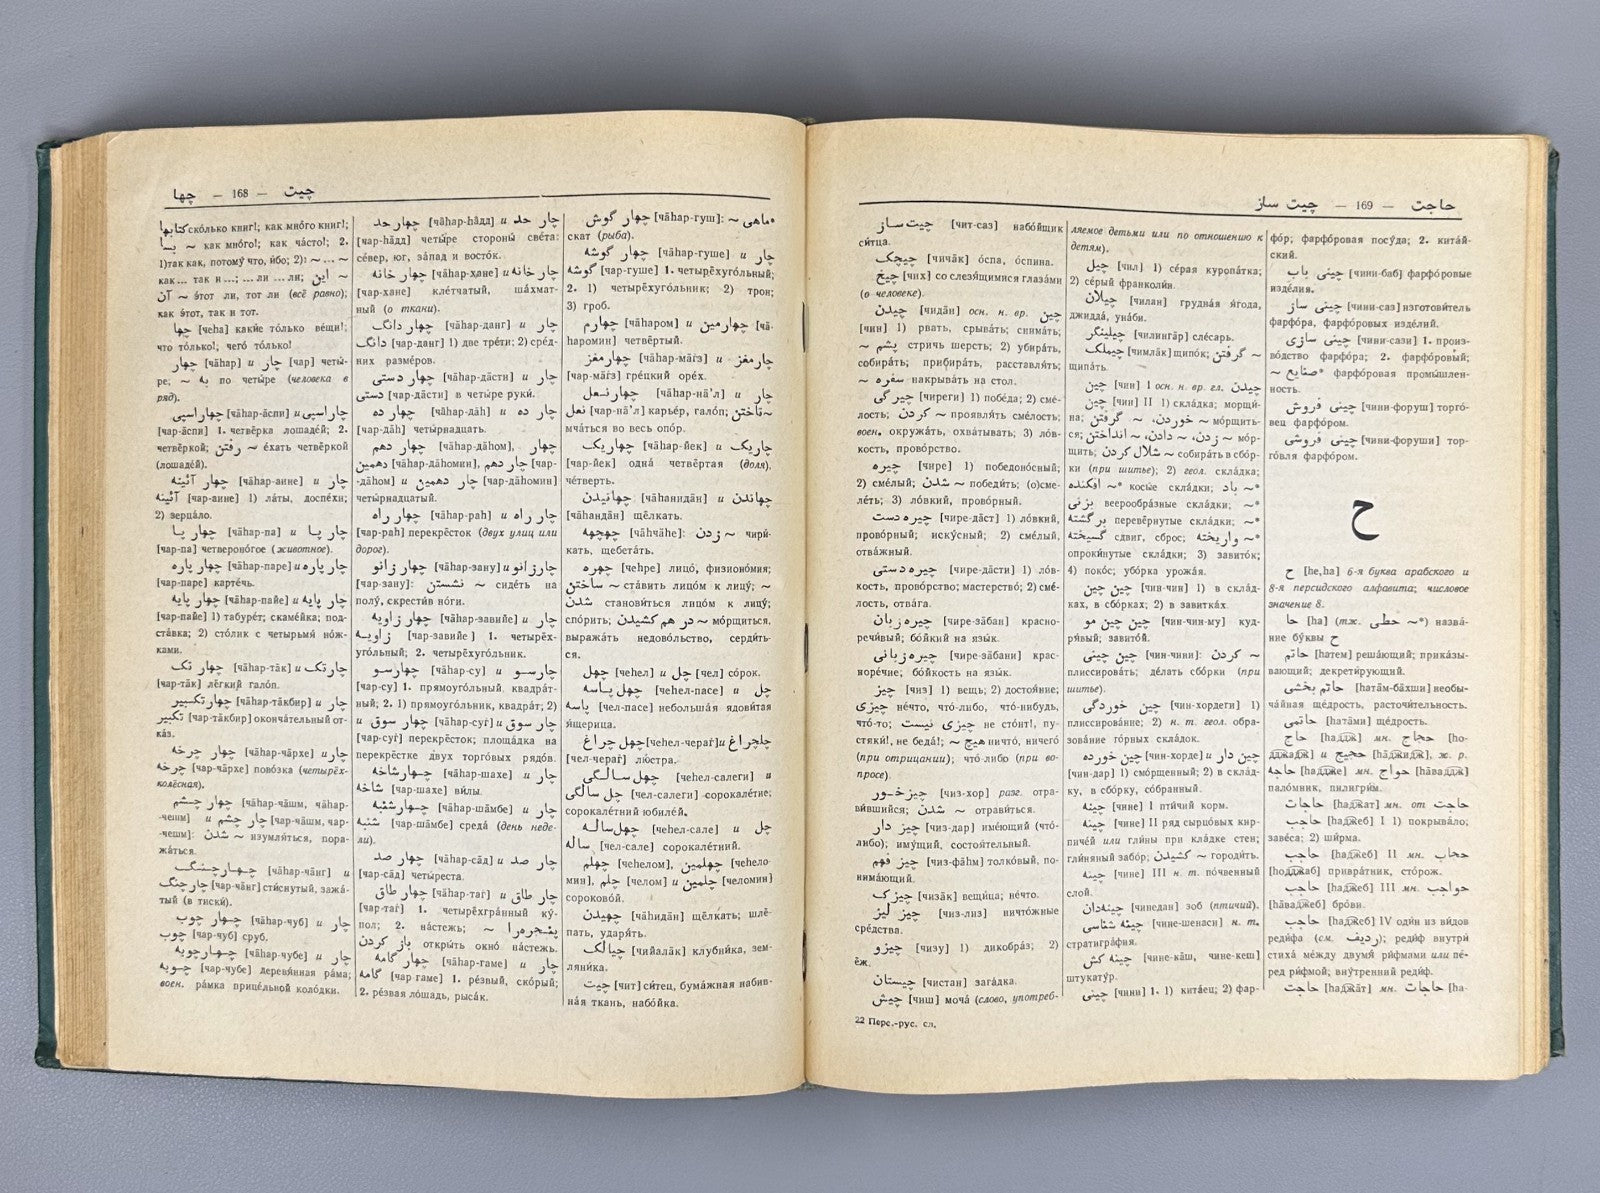 چها — 168 — چیت
کتابها сколько книг!; как мно́го книг!;
بسا ~ как мно́го!; как ча́сто!; 2.
1) так как, потому́ что, и́бо; 2): ~ ... ~
как ... так и ...; ... ли ... ли; این ~
آن ~ э́тот ли, тот ли (всё равно);
как э́тот, так и тот.
چها [чеhа] каки́е то́лько ве́щи!;
что то́лько!; чего́ то́лько!
چهار [чāhар] и چار [чар] четы́-
ре; به ~ по четы́ре (человека в
ряд).
چهاراسپی [чāhар-āспи] и چاراسپی
[чар-āспи] 1. четвёрка лошаде́й; 2.
четвёркой; رفتن ~ е́хать четвёркой
(лошаде́й).
چهار آئینه [чāhар-аине] и چار
آئینه [чар-аине] 1) ла́ты, доспе́хи;
2) зерца́ло.
چهار پا [чāhар-па] и چار پا
[чар-па] четвероно́гое (животное).
چهار پاره [чāhар-паре] и چار پاره
[чар-паре] карте́чь.
چهار پایه [чāhар-пайе] и چار پایه
[чар-пайе] 1) табуре́т; скаме́йка; под-
ста́вка; 2) сто́лик с четырьмя́ но́ж-
ками.
چهار تک [чāhар-тāк] и چارتک
[чар-тāк] лёгкий гало́п.
چهارتکبیر [чāhар-тāкбир] и چار
تکبیر [чар-тāкбир] оконча́тельный от-
ка́з.
چهار چرخه [чāhар-чāрхе] и چار
چرخه [чар-чāрхе] пово́зка (четырёх-
колёсная).
چهار چشم [чāhар-чāшм, чāhар-
чешм] и چار چشم [чар-чāшм, чар-
чешм]: شدن ~ изумля́ться, пора-
жа́ться.
چهارچنگ [чāhар-чāнг] и
چارچنگ [чар-чāнг] сти́снутый, зажа́-
тый (в тиски́).
چهار چوب [чāhар-чуб] и چار
چوب [чар-чуб] сруб.
چهارچوبه [чāhар-чубе] и چار
چوبه [чар-чубе] деревя́нная ра́ма;
воен. ра́мка прице́льной коло́дки.
چهار حد [чāhар-hāдд] и چار حد
[чар-hāдд] четы́ре стороны́ све́та:
се́вер, юг, за́пад и восто́к.
چهار خانه [чāhар-хане] и چار خانه
[чар-хане] кле́тчатый, ша́хмат-
ный (о ткани).
چهار دانگ [чāhар-данг] и چار
دانگ [чар-данг] 1) две тре́ти; 2) сре́д-
них разме́ров.
چهار دستی [чāhар-дāсти] и چار
دستی [чар-дāсти] в четы́ре руки́.
چهار ده [чāhар-дāh] и چار ده
[чар-дāh] четы́рнадцать.
چهار دهم [чāhар-дāhом], چهار
دهمین [чāhар-дāhомин], چار دهم [чар-
дāhом] и چار دهمین [чар-дāhомин]
четы́рнадцатый.
چهار راه [чāhар-раh] и چار راه
[чар-раh] перекрёсток (двух улиц или
дорог).
چهار زانو [чāhар-зану] и چارزانو
[чар-зану]: نشستن ~ сиде́ть на
полу́, скрести́в но́ги.
چهار زاویه [чāhар-завийе] и چار
زاویه [чар-завийе] 1. четырёх-
уго́льный; 2. четырёхуго́льник.
چهار سو [чāhар-су] и چارسو
[чар-су] 1. прямоуго́льный, квадра́т-
ный; 2. 1) прямоуго́льник, квадра́т; 2)
چهار سوق [чāhар-суѓ] и چار سوق
[чар-суѓ] перекрёсток; площа́дка на
перекрёстке двух торго́вых рядо́в.
چهارشاخه [чāhар-шахе] и چار
شاخه [чар-шахе] ви́лы.
چهارشنبه [чāhар-шāмбе] и چار
شنبه [чар-шāмбе] среда́ (день неде-
ли).
چهار صد [чāhар-сāд] и چار صد
[чар-сāд] четы́реста.
چهار طاق [чāhар-таѓ] и چار طاق
[чар-таѓ] 1. четырёхгра́нный ку́-
пол; 2. на́стежь; پنجره‌را ~
باز کردن откры́ть окно́ на́стежь.
چهار گامه [чāhар-гаме] и چار
گامه [чар-гаме] 1. ре́звый, ско́рый;
2. ре́звая ло́шадь, рыса́к.
چهار گوش [чāhар-гуш]: ~ ماهی*
скат (рыба).
چهار گوشه [чāhар-гуше] и چار
گوشه [чар-гуше] 1. четырёхуго́льный;
2. 1) четырёхуго́льник; 2) трон;
3) гроб.
چهارم [чāhаром] и چهارمین [чā-
hаромин] четвёртый.
چهارمغز [чāhар-мāѓз] и چارمغز
[чар-мāѓз] гре́цкий оре́х.
چهارنعل [чāhар-нā'л] и چار
نعل [чар-нā'л] карье́р, гало́п; تاختن~
мча́ться во весь опо́р.
چهاریک [чāhар-йек] и چاریک
[чар-йек] одна́ четвёртая (доля),
че́тверть.
چهاندن и چهانیدن [чāhанидāн]
[чāhандāн] щёлкать.
چهچهه [чāhчāhе]: زدن ~ чири́-
кать, щебета́ть.
چهره [чеhре] лицо́, физионо́мия;
ساختن ~ ста́вить лицо́м к лицу́; ~
شدن станови́ться лицо́м к лицу́;
спо́рить; در هم کشیدن ~ мо́рщиться,
выража́ть недово́льство, серди́ть-
ся.
چهل [чеhел] и چل [чел] со́рок.
چهل پاسه [чеhел-пасе] и چل
پاسه [чел-пасе] небольша́я ядови́тая
я́щерица.
چهل چراغ [чеhел-чераѓ] и چلچراغ
[чел-чераѓ] лю́стра.
چهل سالگی [чеhел-салеги] и
چل سالگی [чел-салеги] сорокале́тие;
сорокале́тний юбиле́й.
چهل ساله [чеhел-сале] и چل
ساله [чел-сале] сорокале́тний.
چهلم [чеhелом], چهلمین [чеhело-
мин], چلم [челом] и چلمین [челомин]
сороково́й.
چهیدن [чāhидāн] щёлкать; шлё-
пать, уда́рять.
چیالک [чийалāк] клубни́ка, зем-
ляни́ка.
چیت [чит] си́тец, бума́жная набив-
на́я ткань, набо́йка.
چیت ساز — 169 — حاجت
چیت ساز [чит-саз] набо́йщик
си́тца.
چیچک [чичāк] о́спа, о́спина.
چیخ [чих] со слезя́щимися глаза́ми
(о человеке).
چیدن [чидāн] осн. н. вр. چین
[чин] 1) рвать, срыва́ть; снима́ть;
پشم ~ стричь шерсть; 2) убира́ть,
собира́ть; прибира́ть, расставля́ть;
سفره ~ накрыва́ть на стол.
چیرگی [чиреги] 1) побе́да; 2) сме́-
лость; کردن ~ проявля́ть сме́лость;
воен. окружа́ть, охва́тывать; 3) ло́в-
кость, прово́рство.
چیره [чире] 1) победоно́сный;
2) сме́лый; شدن ~ победи́ть; (о)сме-
ле́ть; 3) ло́вкий, прово́рный.
چیره دست [чире-дāст] 1) ло́вкий,
прово́рный; иску́сный; 2) сме́лый,
отва́жный.
چیره دستی [чире-дāсти] 1) ло́в-
кость, прово́рство; мастерство́; 2) сме́-
лость, отва́га.
چیره زبان [чире-зāбан] красно-
речи́вый; бо́йкий на язы́к.
چیره زبانی [чире-зāбани] крас-
норе́чие; бо́йкость на язы́к.
چیز [чиз] 1) вещь; 2) достоя́ние;
چیزی не́что, что́-либо, что́-нибудь,
что́-то; چیزی نیست не сто́ит!, пу-
стяки́!, не беда́!; هیچ ~ ничто́, ничего́
(при отрицании); что́-либо (при во-
просе).
چیزخور [чиз-хор] разг. отра-
ви́вшийся; شدن ~ отрави́ться.
چیز دار [чиз-дар] име́ющий (что́-
либо); иму́щий, состоя́тельный.
چیز فهم [чиз-фāhм] толко́вый, по-
нима́ющий.
چیزک [чизāк] вещи́ца; не́что.
چیز لیز [чиз-лиз] ничто́жные
сре́дства.
چیزو [чизу] 1) дикобра́з; 2)
ёж.
چیستان [чистан] зага́дка.
چیش [чиш] моча́ (слово, употреб-
ляемое детьми или по отношению к
детям).
چیل [чил] 1) се́рая куропа́тка;
2) се́рый франколи́н.
چیلان [чилан] грудна́я я́года,
джидда́, уна́би.
چیلینگر [чилингāр] сле́сарь.
چیملک [чимлāк] щипо́к; گرفتن ~
щипа́ть.
چین [чин] I осн. н. вр. гл. چیدن
چین [чин] II 1) скла́дка; морщи́-
на; خوردن، ~ گرفتن ~ мо́рщить-
ся; زدن، ~ دادن، ~ انداختن ~ мо́р-
щить; شلال کردن ~ собира́ть в сбо́р-
ки (при шитье); 2) геол. скла́дка;
افکنده ~* косы́е скла́дки; باد ~*
بزنی веерообра́зные скла́дки; ~*
برگشته перевёрнутые скла́дки; ~*
گسیخته сдвиг, сброс; واریخته ~*
опроки́нутые скла́дки; 3) завито́к;
4) поко́с; убо́рка урожа́я.
چین چین [чин-чин] 1) в скла́д-
ках, в сбо́рках; 2) в завитка́х.
چین چین مو [чин-чин-му] куд-
ря́вый; завито́й.
چین چینی [чин-чини]: کردن ~
плиссирова́ть; де́лать сбо́рки (при
шитье).
چین خوردگی [чин-хордеги] 1)
плиссирова́ние; 2) н. т. геол. обра-
зова́ние го́рных скла́док.
چین خورده [чин-хорде] и چین دار
[чин-дар] 1) смо́рщенный; 2) в скла́д-
ку, в сбо́рку, со́бранный.
چینه [чине] I пти́чий корм.
چینه [чине] II ряд сырцо́вых кир-
пиче́й или гли́ны при кла́дке стен;
гли́няный забо́р; کشیدن ~ городи́ть.
چینه [чине] III н. т. по́чвенный
слой.
چینه‌دان [чинедан] зоб (птичий).
چینه شناسی [чине-шенаси] н. т.
стратигра́фия.
چینه کش [чине-кāш, чине-кеш]
штукату́р.
چینی [чини] 1. 1) кита́ец; 2) фар-
фо́р; фарфо́ровая посу́да; 2. кита́й-
ский.
چینی باب [чини-баб] фарфо́ровые
изде́лия.
چینی ساز [чини-саз] изготови́тель
фарфо́ра, фарфо́ровых изде́лий.
چینی سازی [чини-сази] 1. произ-
во́дство фарфо́ра; 2. фарфо́ровый;
صنایع ~* фарфо́ровая промы́шлен-
ность.
چینی فروش [чини-форуш] торго́-
вец фарфо́ром.
چینی فروشی [чини-форуши] тор-
го́вля фарфо́ром.
ح
ح [hе, hа] 6-я буква арабского и
8-я персидского алфавита; числовое
значение 8.
حا [hа] (тж. حطی ~*) назва́-
ние бу́квы ح
حاتم [hатем] реша́ющий; прика́зы-
вающий; декрети́рующий.
حاتم بخشی [hатāм-бāхши] необы-
ча́йная ще́дрость, расточи́тельность.
حاتمی [hатāми] ще́дрость.
حاج [hадж] мн. حجاج [hо-
дджадж] и حجیج [hāджидж], ж. р.
حاجه [hаддже] мн. حواج [hāваддж]
пало́мник, пилигри́м.
حاجات [hаджат] мн. от حاجت
حاجب [hаджеб] I 1) покрыва́ло;
заве́са; 2) ши́рма.
حاجب [hаджеб] II мн. حجاب
[hодджаб] привра́тник, сто́рож.
حاجب [hаджеб] III мн. حواجب
[hāваджеб] бро́ви.
حاجب [hаджеб] IV оди́н из ви́дов
реди́фа (см. ردیف); реди́ф внутри́
стиха́ ме́жду двумя́ ри́фмами или пе́-
ред ри́фмой; вну́тренний реди́ф.
حاجت [hаджāт] мн. حاجات [hа-
22 Перс.-рус. сл.